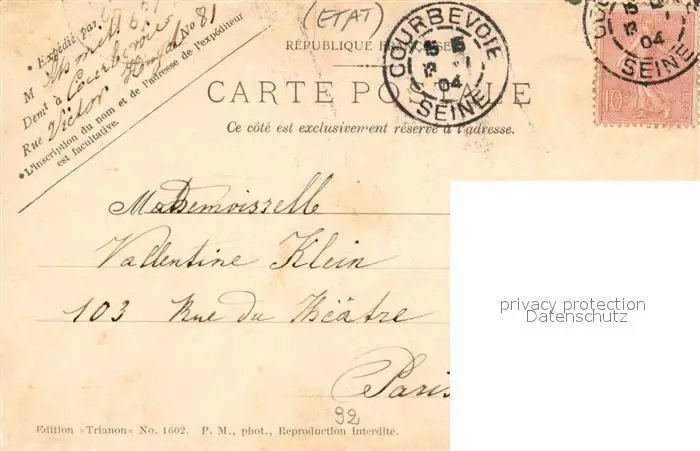 (ETAT)
Expédié par
M
Demt à Courbevoie
Rue Victor Hugo No 81
L'inscription du nom et de l'adresse de l'expéditeur
est facultative.
RÉPUBLIQUE FRANÇAISE
CARTE POSTALE
Ce côté est exclusivement réservé à l'adresse.
COURBEVOIE
04
SEINE
04
SEINE
10
Mademoisselle
Vallentine Klein
103 Rue du Théâtre
Paris
92
Edition »Trianon« No. 1602. P. M., phot., Reproduction interdite.
privacy protection
Datenschutz